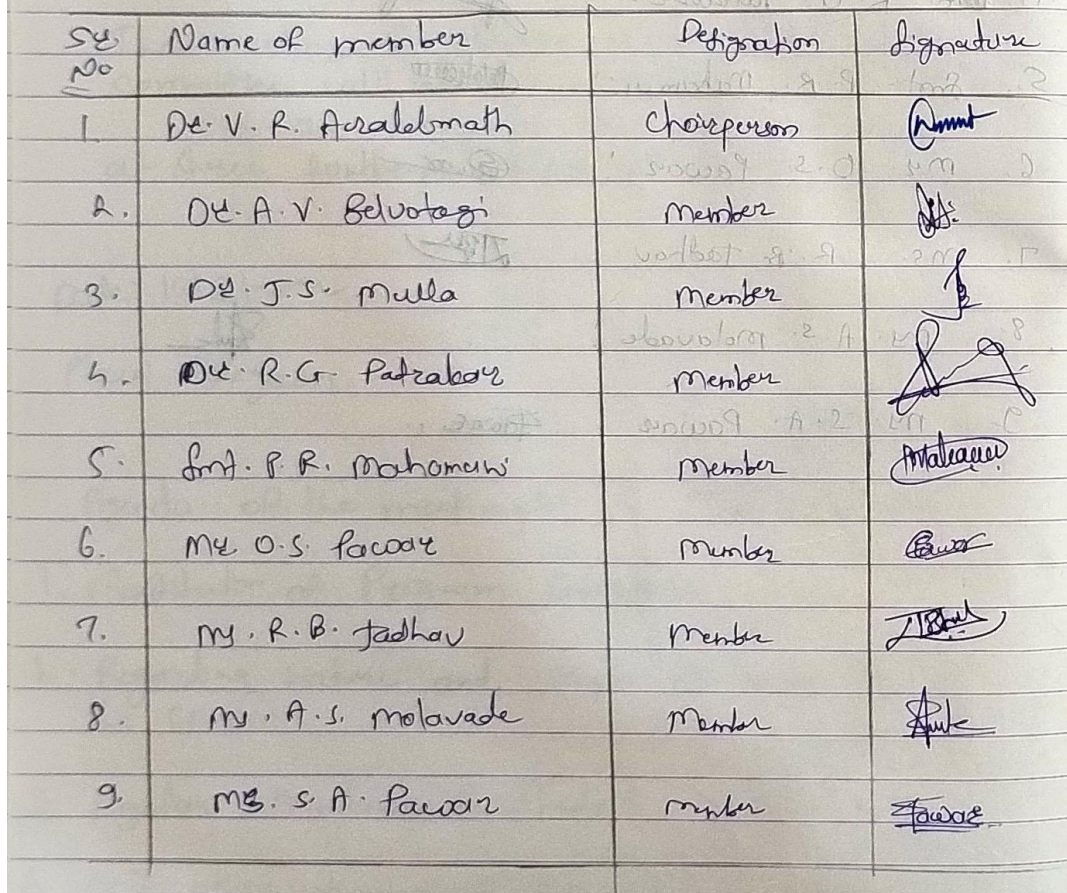 Sr No Name of member Designation Signature
1. Dr. V. R. Acraldmath Chairperson
2. Dr. A. V. Belvotagi Member
3. Dr. J. S. Mulla Member
4. Dr. R. G. Patrabar Member
5. Smt. P. R. Mahamuni Member
6. Mr O. S. Pawar Member
7. Ms. R. B. Jadhav Member
8. Ms. A. S. Molavade Member
9. Ms. S. A. Pawar Member Pawar